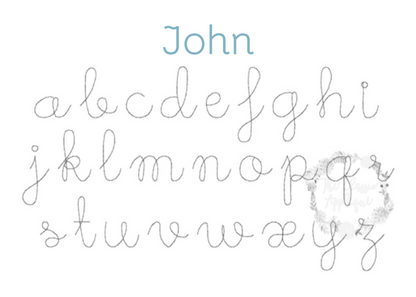 John
abcdefghi
jklmnopqr
stuvwxyz